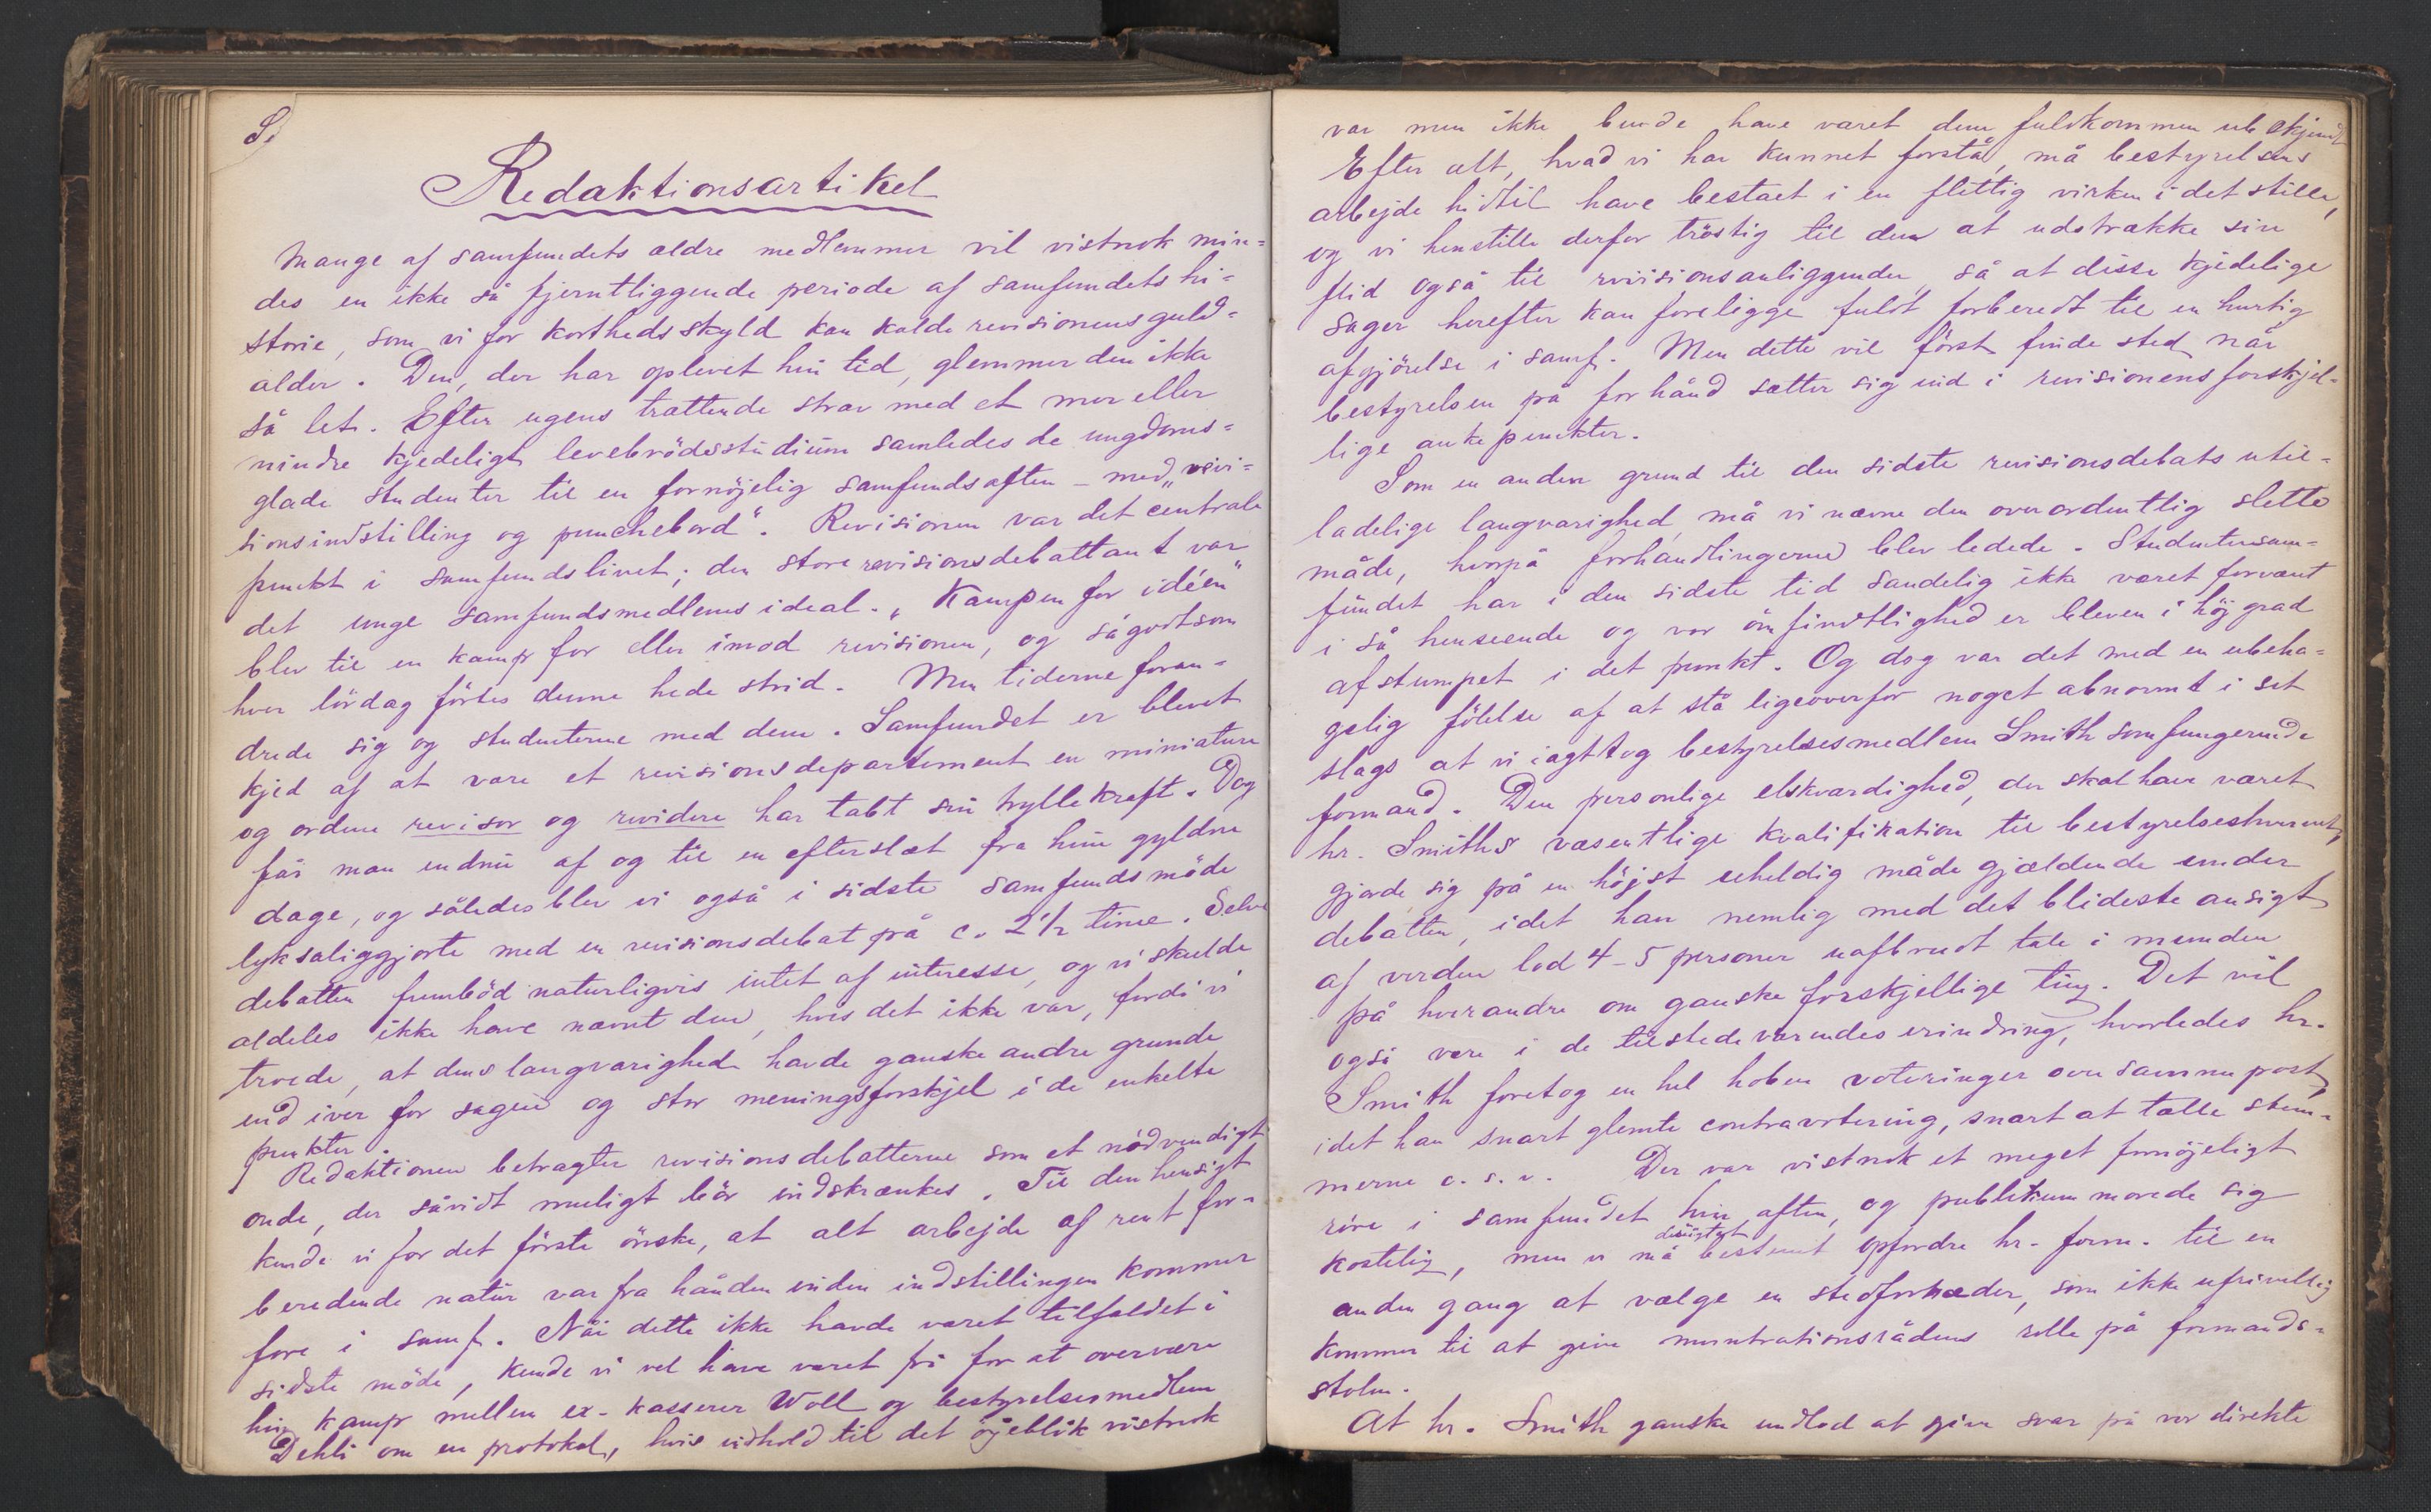 S.
Redaktionsartikel
Mange af samfundets ældre medlemmer vil vistnok min-
des en ikke så fjerntliggende periode af samfundets hi-
storie, som vi for kortheds skyld kan kalde revisionens guld-
alder. Den, der har oplevet hin tid, glemmer den ikke
så let. Efter ugens trættende stræv med et mer eller
mindre kjedeligt levebrödsstudium samledes de ungdoms-
glade studenter til en fornöjelig samfundsaften - med "revi-
sionsindstilling og punchebord". Revisionen var det centrale
punkt i samfundslivet; den store revisionsdebattant var
det unge samfundsmedlems ideal. "Kampen for idéen"
blev til en kamp for eller imod revisionen, og sågodtsom
hver lördag förtes denne hede strid. Men tiderne foran-
drede sig og studenterne med dem. Samfundet er blevet
kjed af at være et revisionsdepartement en miniature
og ordene revisor og revidere har tabt sin tryllekraft. Dog
får man endnu af og til en efterslæt fra hine gyldne
dage, og således blev vi også i sidste samfundsmöde
lyksaliggjorte med en revisionsdebat på c. 2 1/2 time. Selve
debatten frembød naturligvis intet af interesse, og vi skulde
aldeles ikke have nævnt den, hvis det ikke var, fordi vi
troede, at dens langvarighed havde ganske andre grunde
end iver for sagen og stor meningsforskjel i de enkelte
punkter.
Redaktionen betragter revisionsdebatterne som et nödvendigt
onde, der såvidt muligt bör indskrænkes. Til den hensigt
kunde vi for det förste önske, at alt arbejde af rent for-
beredende natur var fra hånden inden indstillingen kommer
fore i samf. När dette ikke havde været tilfældet i
sidste möde, kunde vi vel have været fri for at overvære
hin kamp mellem ex-kasserer Woll og bestyrelsesmedlem
Dehli om en protokol, hvis indhold til det öjeblik vistnok
var men ikke burde have været dem fuldkommen ubekjendt
Efter alt, hvad vi har kunnet forstå, må bestyrelsens
arbejde hidtil have bestaet i en flittig virken i det stille,
og vi henstille derfor tröstig til dem at udstrække sin
flid også til revisionsanliggender, så at disse kjedelige
sager herefter kan foreligge fuldt forberedt til en hurtig
afgjörelse i samf. Men dette vil först finde sted når
bestyrelsen på forhånd sætter sig ind i revisionens forskjel-
lige ankepunkter.
Som en anden grund til den sidste revisionsdebats util-
ladelige langvarighed må vi nævne den overordentlig slette
måde, hvorpå forhandlingerne blev ledede. Studentersam-
fundet har i den sidste tid sandelig ikke været forvænt
i så henseende og vor ömfindtlighed er bleven i höj grad
afstumpet i det punkt. Og dog var det med en ubeha-
gelig fölelse af at stå ligeoverfor noget abnormt i sit
slags at vi iagttog bestyrelsesmedlem Smith som fungerende
formand. Den personlige elskværdighed, der skal have været
hr. Smiths væsentlige kvalifikation til bestyrelseshvervet,
gjorde sig på en höjst uheldig måde gjældende under
debatten, idet han nemlig med det blideste ansigt
af verden lod 4-5 personer uafbrudt tale i munden
på hverandre om ganske forskjellige ting. Det vil
også være i de tilstedeværendes erindring, hvorledes hr.
Smith foretog en hel hoben voteringer over samme post,
idet han snart glemte contravotering, snart at tælle stem-
merne o. s. v. Der var vistnok et meget fornöjeligt
röre i samfundet hin aften, og publikum morede sig
desuagtet
kostelig, men vi må bestemt opfordre hr. form. til en
anden gang at vælge en stedfortræder, som ikke ufrivillig
kommer til at give muntrationsrådens rolle på formands-
stolen.
At hr. Smith ganske undlod at give svar på vor direkte